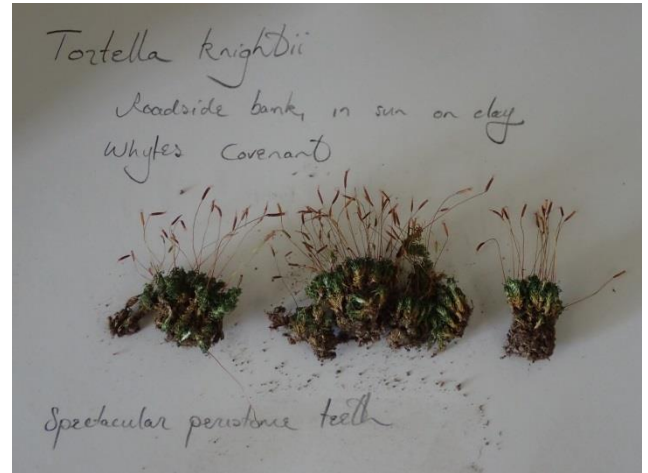 Tortella knightii
Roadside bank, in sun on clay
Whytes Covenant
Spectacular peristome teeth